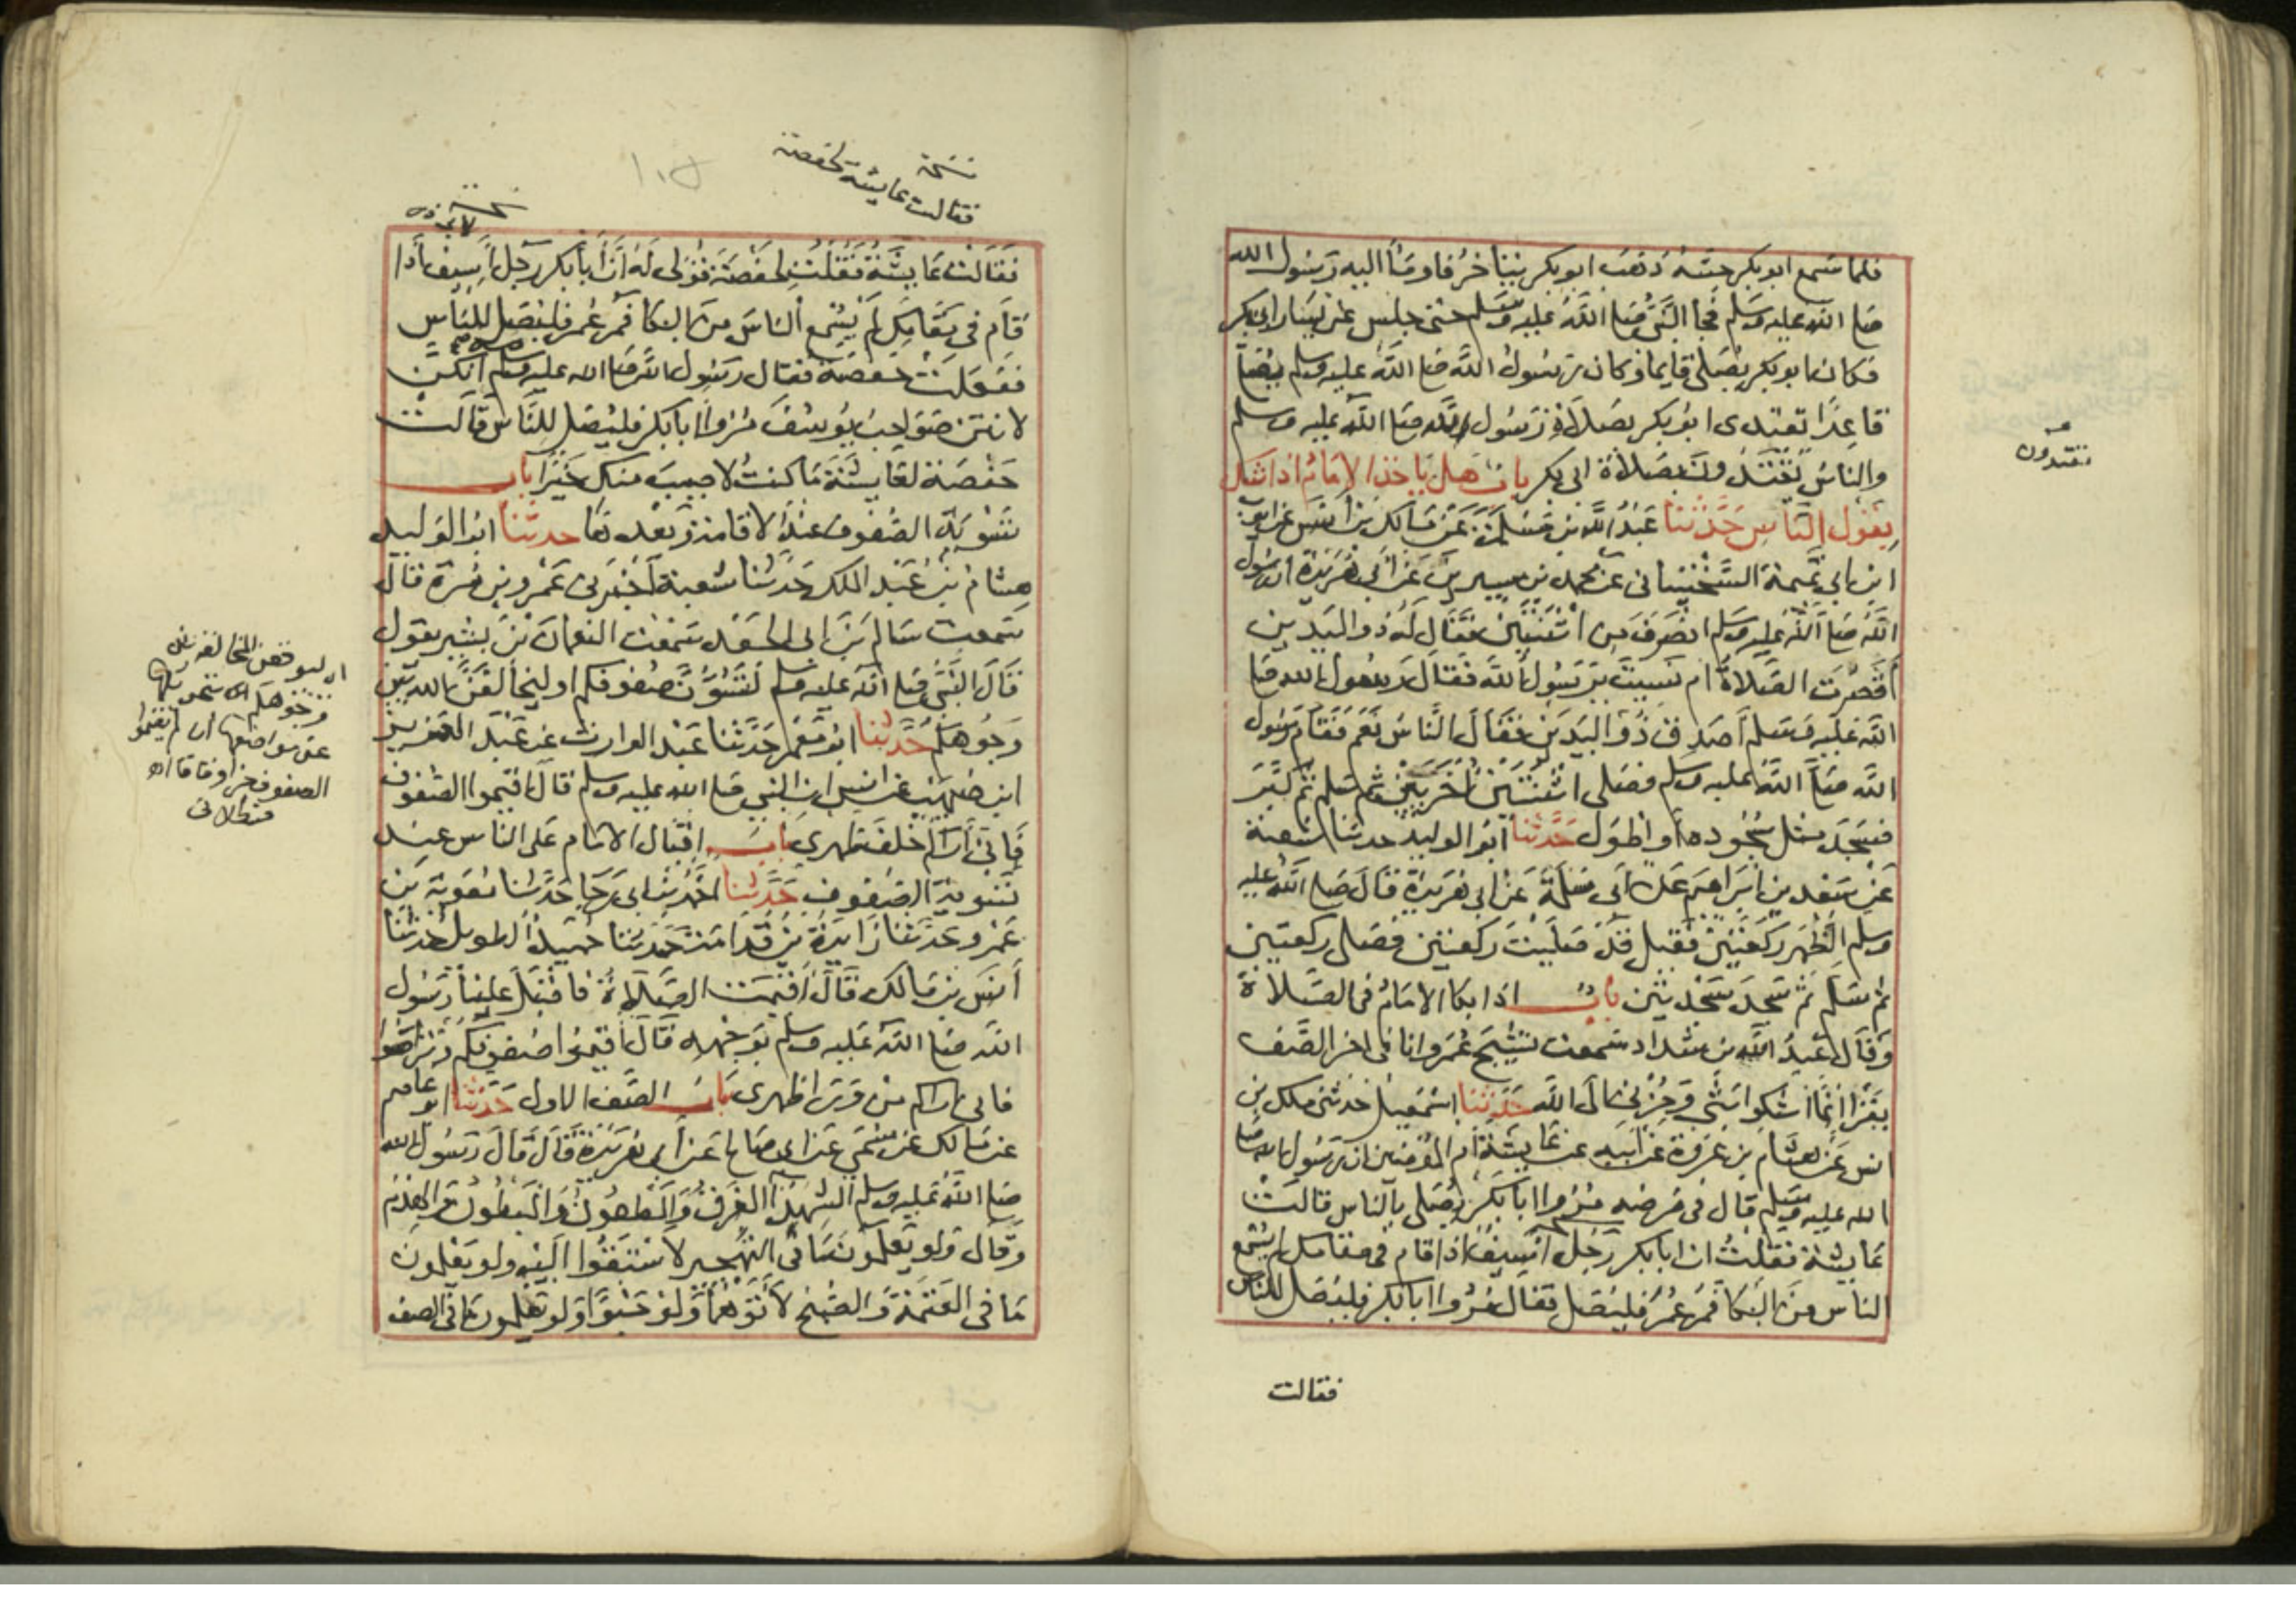 فلما سمع ابو بكر حسه ذهب ابو بكر يتأخر فاومأ اليه رسول الله
صلى الله عليه وسلم فجا النبي صلى الله عليه وسلم حتى جلس عن يسار ابى بكر
فكان ابو بكر يصلى قايما وكان رسول الله صلى الله عليه وسلم يصلى
قاعدا يقتدى ابو بكر بصلاة رسول الله صلى الله عليه وسلم
والناس بصلاة ابى بكر باب هل ياخذ الامام اذا شك
بقول الناس حدثنا عبد الله بن مسلمة عن مالك بن انس عن ايوب
ابن ابى تميمة السختيانى عن محمد بن سيرين عن ابى هريرة ان رسول
الله صلى الله عليه وسلم انصرف من اثنتين فقال له ذو اليدين
أقصرت الصلاة ام نسيت يرسول الله فقال رسول الله صلى
الله عليه وسلم أصدق ذو اليدين فقال الناس نعم فقام رسول
الله صلى الله عليه وسلم فصلى اثنتين أخريين ثم سلم ثم كبر
فسجد مثل سجوده او اطول حدثنا ابو الوليد حدثنا شعبة
عن سعد بن ابراهيم عن ابى سلمة عن ابى هريرة قال صلى الله عليه
وسلم الظهر ركعتين فقيل قد صليت ركعتين فصلى ركعتين
ثم سلم ثم سجد سجدتين باب اذا بكا الامام فى الصلاة
وقال عبد الله بن شداد سمعت نشيج عمر وانا فى اخر الصف
يقرا انما اشكوا بثى وحزنى الى الله حدثنا اسمعيل حدثنى ملك بن
انس عن هشام بن عروة عن ابيه عن عايشة أم المؤمنين ان رسول الله صلى
الله عليه وسلم قال فى مرضه مروا ابا بكر يصلى بالناس قالت
عايشة فقلت ان ابا بكر رجل أسيف اذا قام فى مقامك لم يسمع
الناس من البكا فمر عمر فليصل فقال مروا ابا بكر فليصل للناس
فقالت
يقتدون
نسخة
فقالت عايشة لحفصة
فقالت عايشة فقلت لحفصة قولى له ان أبا بكر رجل أسيف أذا
قام فى مقامك لم يسمع الناس من البكا فمر عمر فليصل للناس
ففعلت حفصة فقال رسول الله صلى الله عليه وسلم انكن
لانتن صواحب يوسف مروا ابا بكر فليصل للناس قالت
حفصة لعايشة ما كنت لاصيب منك خيرا باب
تسوية الصفوف عند الاقامة وبعدها حدثنا ابو الوليد
هشام بن عبد الملك حدثنا شعبة أخبرنى عمرو بن مرة قال
سمعت سالم بن ابى الجعد سمعت النعمان بن بشير يقول
قال النبى صلى الله عليه وسلم لتسون صفوفكم او ليخالفن الله بين
وجوهكم حدثنا ابو معمر حدثنا عبد الوارث عن عبد العزيز
ابن صهيب عن انس ان النبى صلى الله عليه وسلم قال اقيموا الصفوف
فانى أراكم خلف ظهرى باب اقبال الامام على الناس عند
تسوية الصفوف حدثنا احمد بن ابى رجا حدثنا معوية بن
عمرو حدثنا زايدة بن قدامة حدثنا حميد الطويل حدثنا
أنس بن مالك قال أقيمت الصلاة فاقبل علينا رسول
الله صلى الله عليه وسلم بوجهه فقال أقيموا صفوفكم وتراصوا
فانى اراكم من ورا ظهرى باب الصف الاول حدثنا ابو عاصم
عن مالك عن سمى عن ابى صالح عن أبى هريرة قال قال رسول الله
صلى الله عليه وسلم الشهدا الغرق والمطعون والمبطون والهدم
وقال ولو يعلمون ما فى التهجير لاستبقوا اليه ولو يعلمون
ما فى العتمة والصبح لأتوهما ولو حبوا ولو يعلمون ما فى الصف